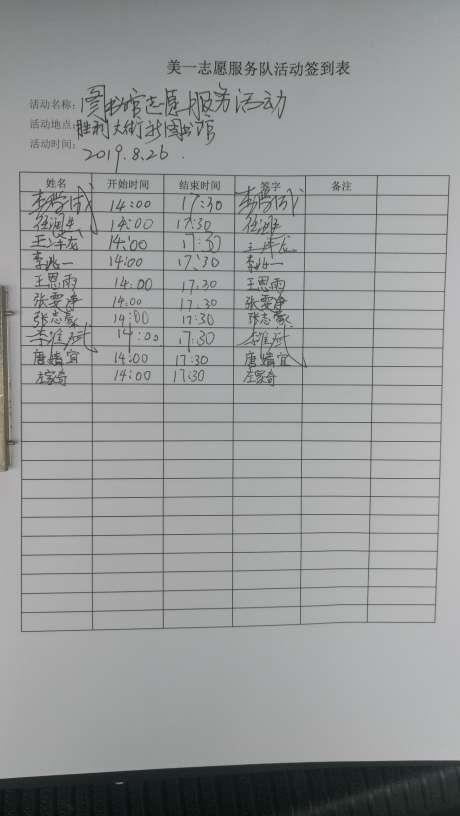 美一志愿服务队活动签到表
活动名称：图书馆志愿服务活动
活动地点：胜利大街新图书馆
活动时间：2019.8.26.
姓名 开始时间 结束时间 签字 备注
李学成 14:00 17:30 李学成
14:00 17:30
14:00 17:30
李兆一 14:00 17:30 李兆一
王思雨 14:00 17.30 王思雨
张雯净 14:00 17.30 张雯净
张志豪 14:00 17:30 张志豪
14:00 17:30
唐婧宜 14:00 17:30 唐婧宜
左家奇 14:00 17:30 左家奇